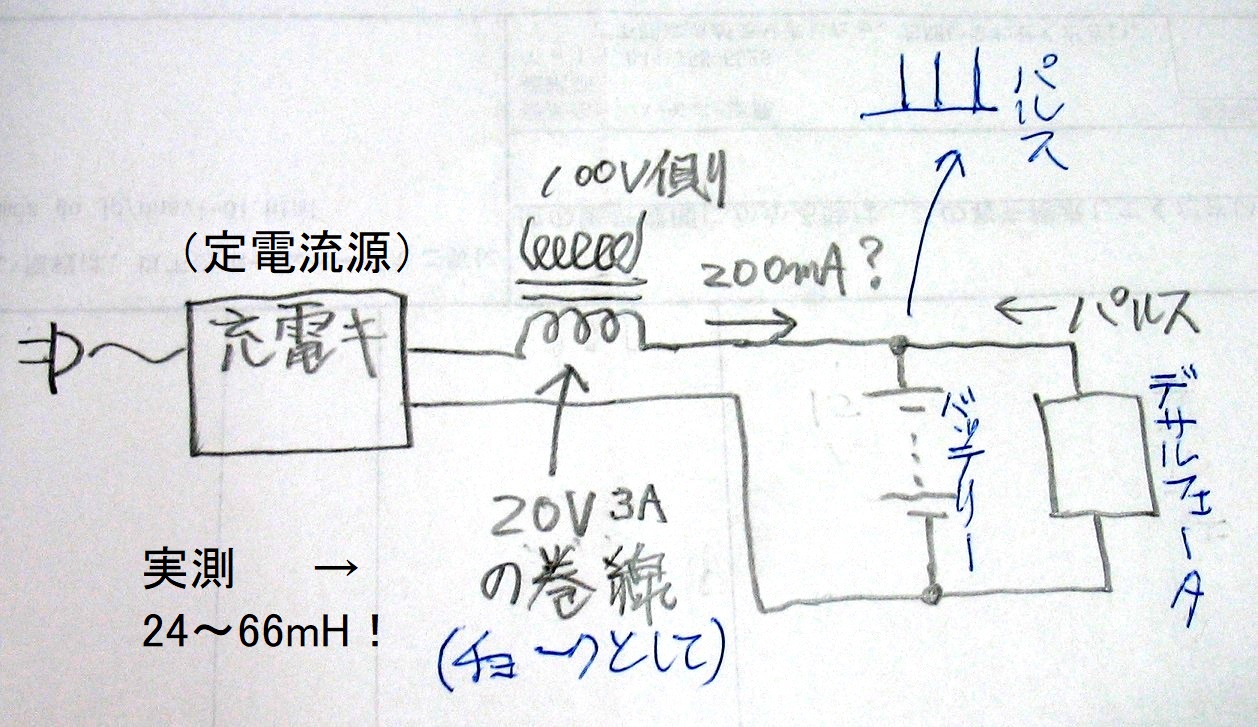 パルス
100V側
(定電流源)
200mA?
充電キ
←パルス
バッテリー
デサルフェータ
20V 3A
の巻線
(チョークとして)
実測 →
24～66mH!